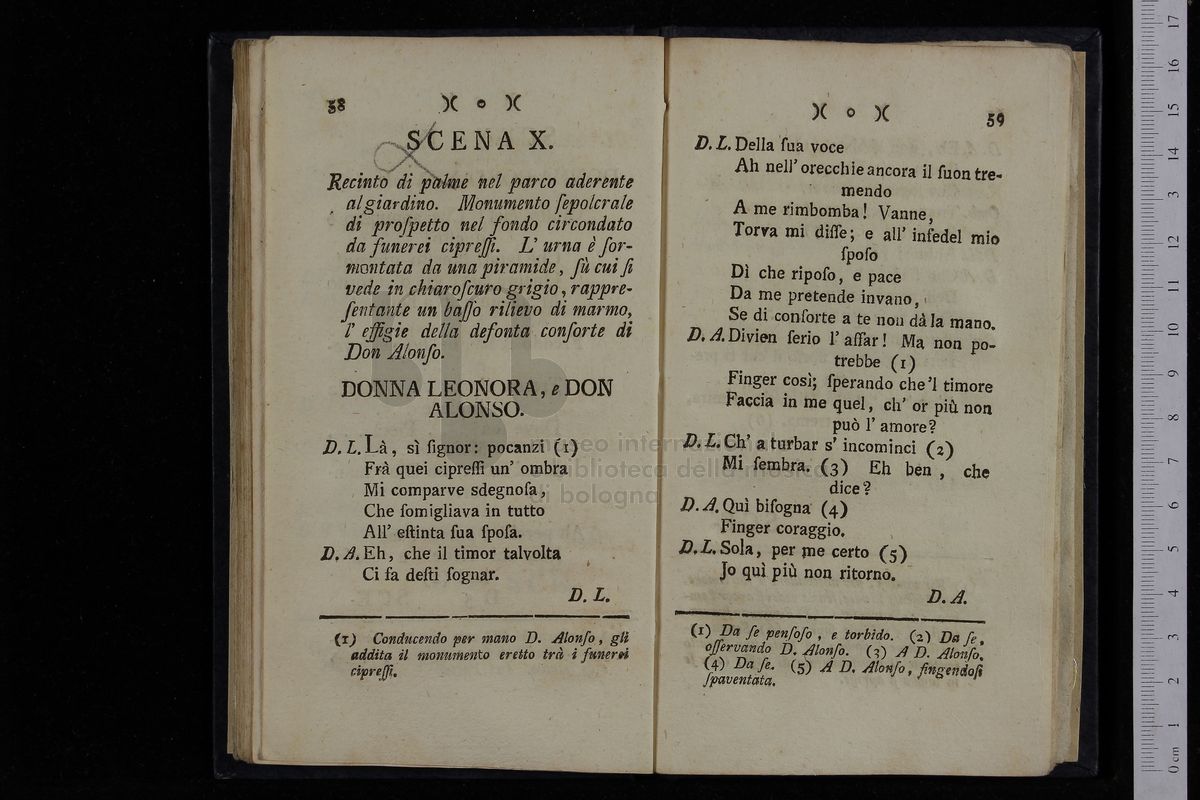 38 )( o )(
SCENA X.
Recinto di palme nel parco aderente
al giardino. Monumento ſepolcrale
di proſpetto nel fondo circondato
da funerei cipreſſi. L' urna è ſor-
montata da una piramide, ſù cui ſi
vede in chiaroſcuro grigio, rappre-
ſentante un baſſo rilievo di marmo,
l' effigie della defonta conſorte di
Don Alonſo.
DONNA LEONORA, e DON
ALONSO.
D. L. Là, sì ſignor: pocanzi (1)
Frà quei cipreſſi un' ombra
Mi comparve sdegnoſa,
Che ſomigliava in tutto
All' eſtinta ſua ſpoſa.
D. A. Eh, che il timor talvolta
Ci fa deſti ſognar.
D. L.
(1) Conducendo per mano D. Alonſo, gli
addita il monumento eretto trà i funerei
cipreſſi.
)( o )( 59
D. L. Della ſua voce
Ah nell' orecchie ancora il ſuon tre-
mendo
A me rimbomba! Vanne,
Torva mi diſſe; e all' infedel mio
ſpoſo
Dì che ripoſo, e pace
Da me pretende invano,
Se di conſorte a te non dà la mano.
D. A. Divien ſerio l' affar! Ma non po-
trebbe (1)
Finger così; ſperando che'l timore
Faccia in me quel, ch' or più non
può l' amore?
D. L. Ch' a turbar s' incominci (2)
Mi ſembra. (3) Eh ben, che
dice?
D. A. Quì biſogna (4)
Finger coraggio.
D. L. Sola, per me certo (5)
Jo quì più non ritorno.
D. A.
(1) Da ſe penſoſo, e torbido. (2) Da ſe,
oſſervando D. Alonſo. (3) A D. Alonſo.
(4) Da ſe. (5) A D. Alonſo, fingendoſi
ſpaventata.
museo internazionale
biblioteca della musica
di bologna
0 cm 1 2 3 4 5 6 7 8 9 10 11 12 13 14 15 16 17